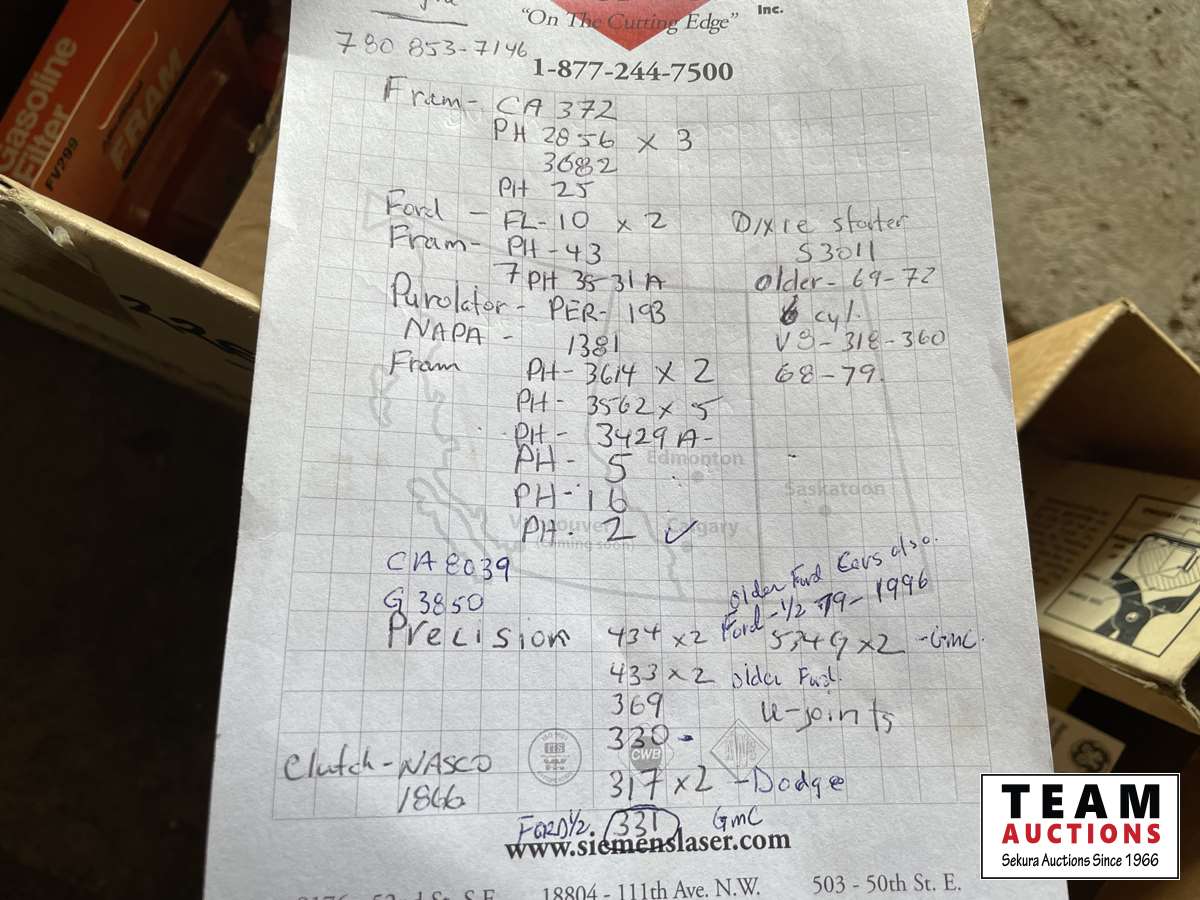 "On The Cutting Edge" Inc.
780 853-7146
1-877-244-7500
Gasoline
Filter
FV299
FRAM
Fram- CA 372
PH 2856 x 3
3682
PH 25
Ford - FL-10 x 2
Fram- PH-43
7 PH 35-31A
Purolator- PER-193
NAPA - 1381
Fram PH-3614 x 2
PH- 3562 x 5
PH- 3429A-
PH- 5
PH-16
PH- 2 ✓
Dixie starter
S3011
older- 69-72
6 cyl.
V8-318-360
68-79.
Edmonton
Saskatoon
Vancouver
(Coming soon)
Calgary
CA 8039
G 3850
older Ford Cars also.
Ford-1/2 79-1996
Precision 434 x 2 5349 x 2 -GMC.
433 x 2 older Ford.
369 U-joints
330-
CWB
Clutch-NASCO
1866
317 x 2 -Dodge
FORD 1/2. 331 GMC
www.siemenslaser.com
18804 - 111th Ave. N.W. 503 - 50th St. E.
TEAM
AUCTIONS
Sekura Auctions Since 1966